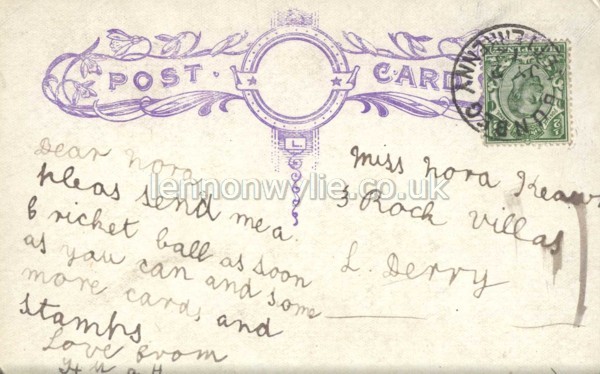 POST CARD
Dear Nora
pleas send me a
Cricket ball as soon
as you can and some
more cards and
stamps
Love from
Hugh
Miss Nora
3 Rock Villas
L. Derry
lennonwylie.co.uk